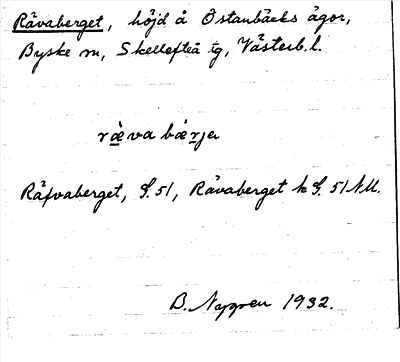 Rävaberget, höjd å Östanbäcks ägor,
Byske sn, Skellefteå tg, Västerb. l.
ræ̀va bærja
Räfvaberget, S. 51, Rävaberget k S. 51 NU.
B. Nygren 1932.